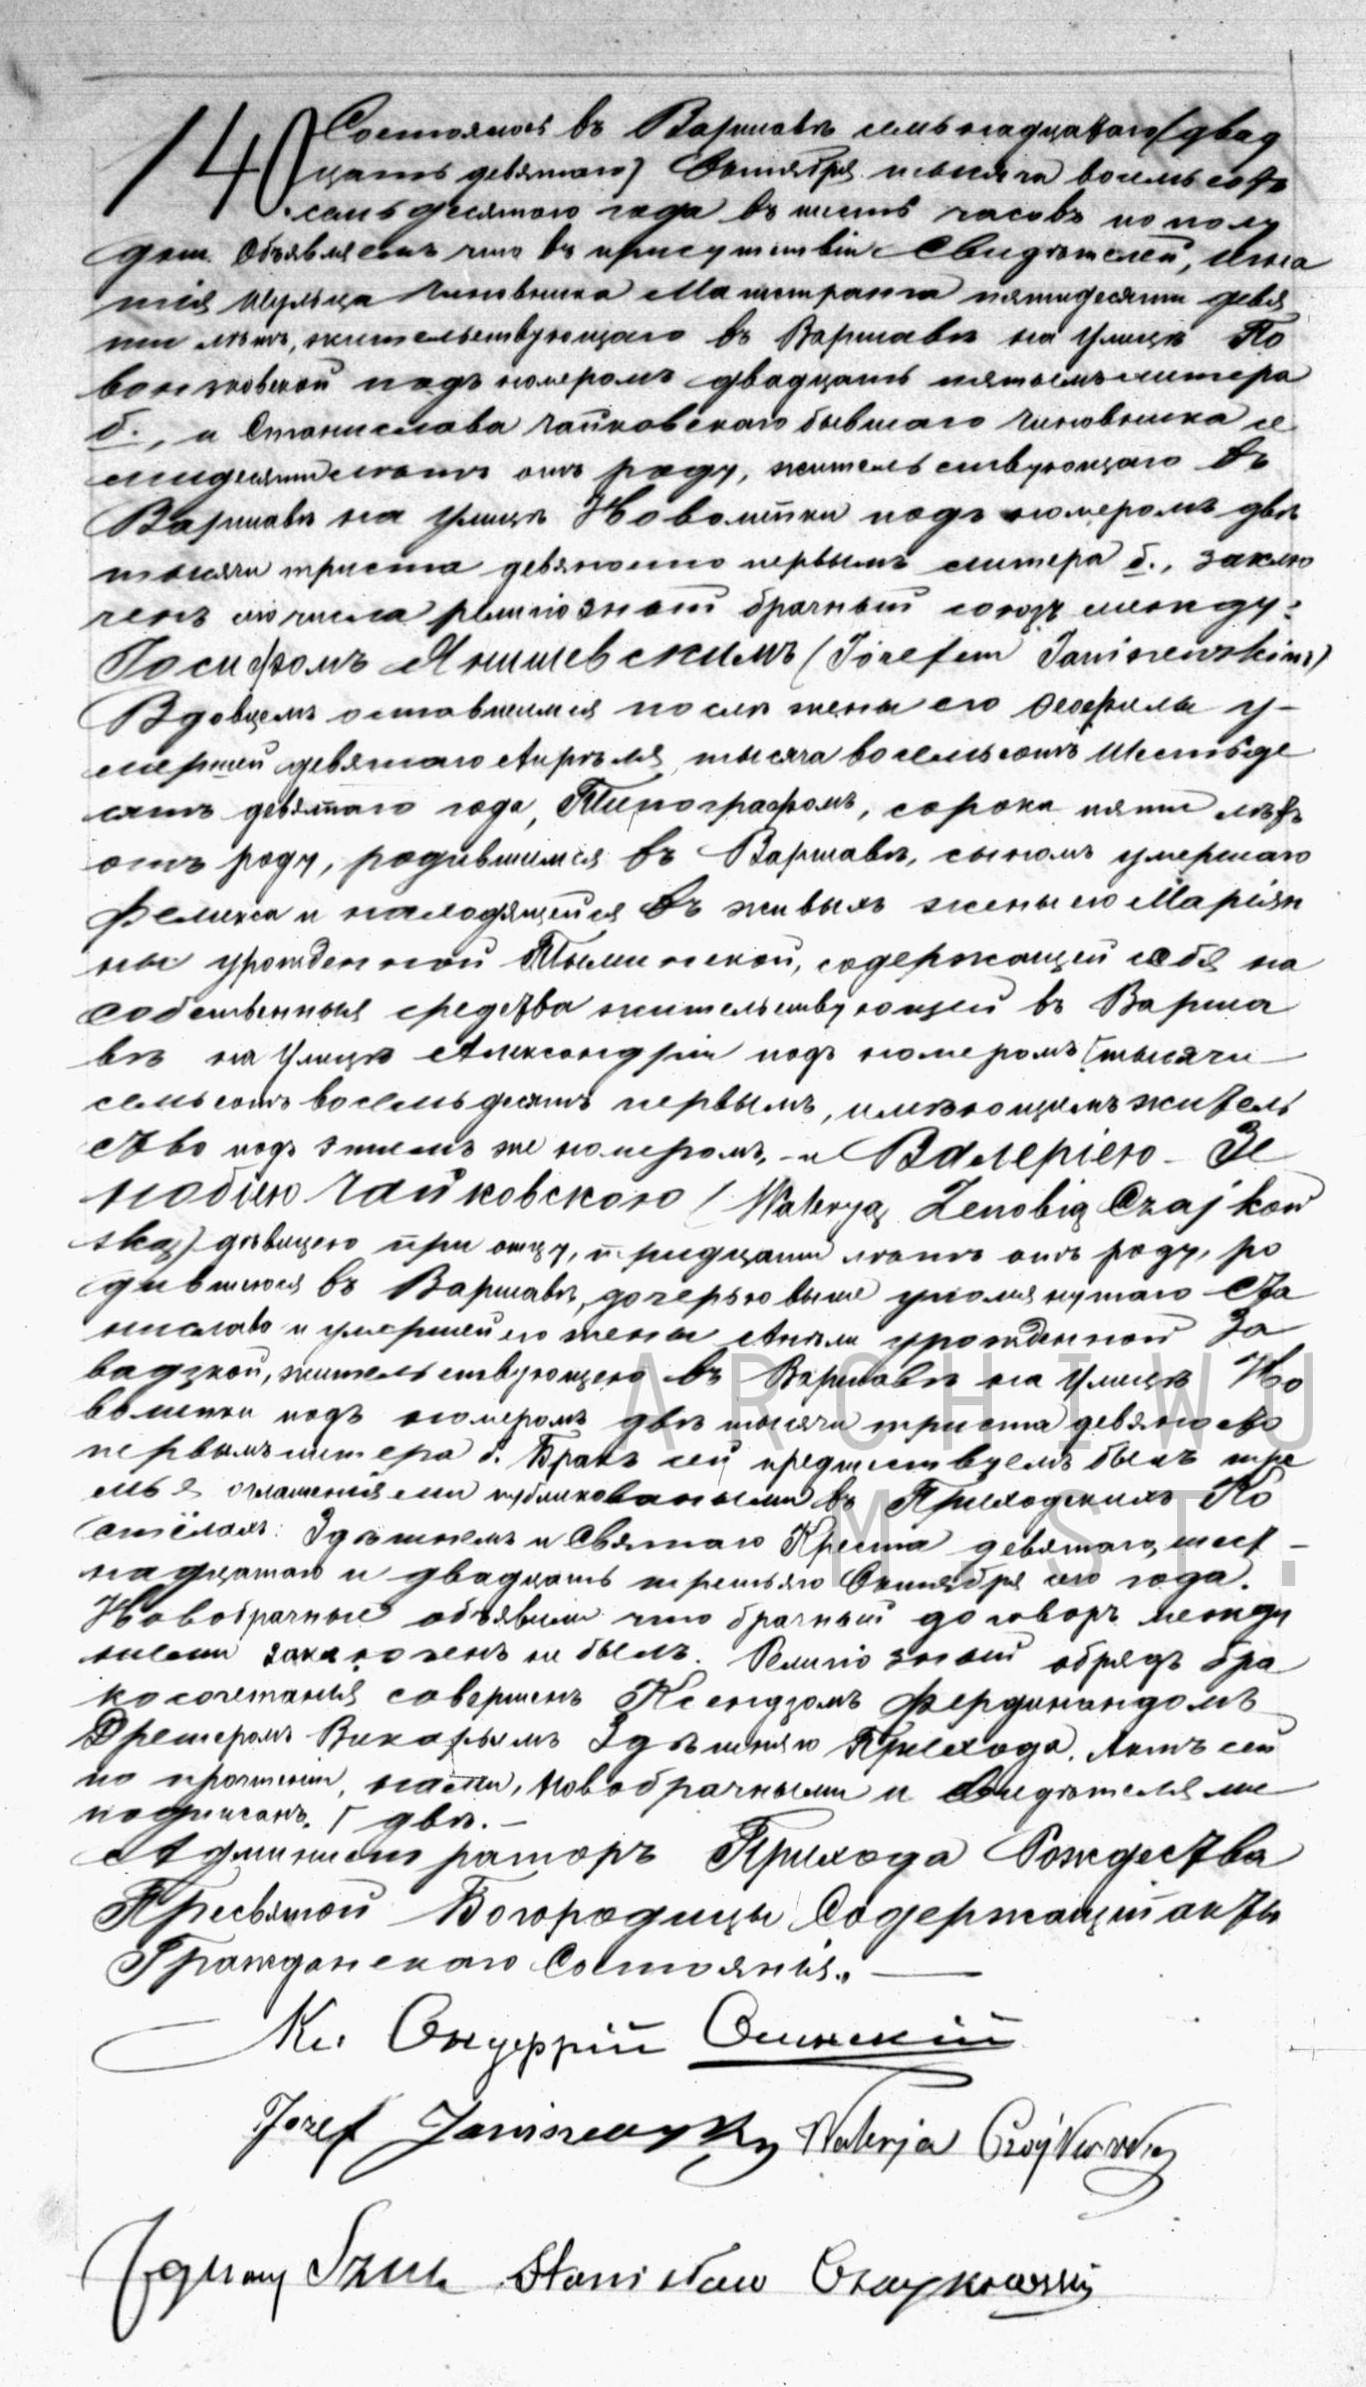 140 Состоялось въ Варшавѣ семьнадцатаго (двад
цать девятаго) Октября тысяча восемьсотъ
семьдесятаго года въ шесть часовъ по полу
дни. Объявляемъ что въ присутствіи Свидѣтелей, Игна
тія Шульца Чиновника Магистрата пятидесяти девя
ти лѣтъ, жительствующаго въ Варшавѣ на Улицѣ По
вонзковской подъ номеромъ двадцать пятымъ литера
б., и Станислава Чайковскаго бывшаго Чиновника се
мидесяти лѣтъ отъ роду, жительствующаго въ
Варшавѣ на Улицѣ Новолипки подъ номеромъ двѣ
тысячи триста девяносто первымъ литера б., заклю
ченъ сего числа религіозный брачный союзъ между:
Іосифомъ Янишевскимъ (Józefem Janiszewskim)
Вдовцемъ оставшимся послѣ жены его Феофилы у-
мершей девятаго Апрѣля тысяча восемьсотъ Шестьде
сятъ девятаго года, Типографомъ, сорока пяти лѣтъ
отъ роду, родившимся въ Варшавѣ, сыномъ умершаго
Феликса и находящейся въ живыхъ жены его Маріян
ны урожденной содержащей себя на
собственныя средства жительствующей въ Варша
вѣ на Улицѣ Александріи подъ номеромъ Г тысячи
семьсотъ восемьдесятъ первымъ, имѣющимъ житель
ство подъ этимъ же номеромъ, - и Валеріею Зе
нобіею Чайковскою (Waleryą Zenobią Czajkow
ską) дѣвицею при отцу, тридцати лѣтъ отъ роду, ро
дившеюся въ Варшавѣ, дочерью выше упомянутаго Ста
нислава и умершей его жены Анѣли урожденной За
вадзкой, жительствующею въ Варшавѣ на Улицѣ Но
волипки подъ номеромъ двѣ тысячи триста девяносто
первымъ литера б. Бракъ сей предшествуемъ былъ тре
мья оглашеніями публикованными въ Приходскихъ Ко
стёлахъ: Здѣшнемъ и Святаго Креста девятаго, шест-
надцатаго и двадцать третьяго Октября сего года.
Новобрачные объявили что брачный договоръ между
ними заключенъ не былъ. Религіозный обрядъ бра
косочетанія совершенъ Ксендзомъ Фердинандомъ
Дрешеромъ Викарьямъ Здѣшняго Прихода. Актъ сей
по прочтеніи, нами, новобрачными и свидѣтелями
подписанъ. Г двѣ. -
Администраторъ Прихода Рождества
Пресвятой Богородицы Содержащій акты
Гражданскаго Состоянія. —
Кс. Онуфрій Осинскій
Józef Janiszewski Walerja Czajkowska
Ignacy Szulc Stanisław Czaykowski
ARCHIWUM
ST.